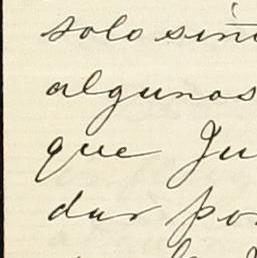 solo sin
algunos
que Ju
dar po